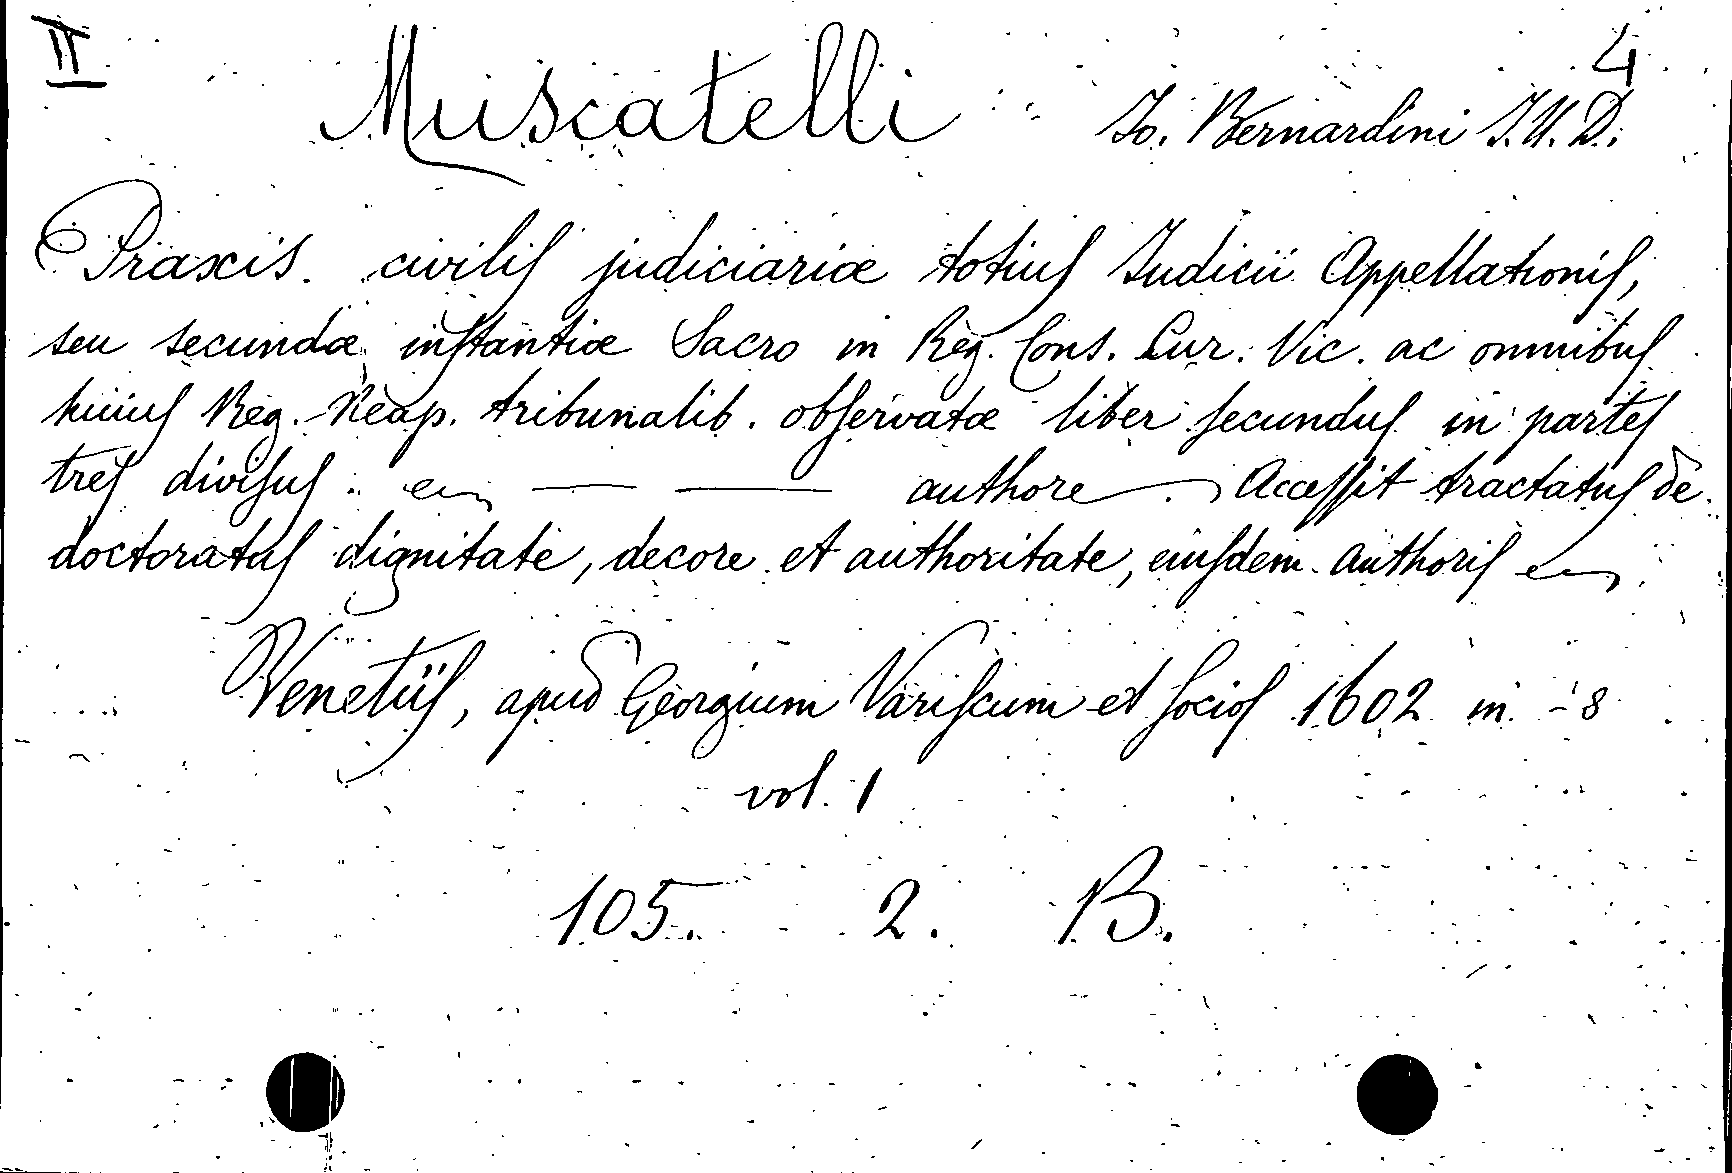 II
4
Muscatelli Jo. Bernardini J.U.D.
Praxis civilis judiciariæ totius Judicii Appellationis,
seu secundæ instantiæ Sacro in Reg. Cons. Cur. Vic. ac omnibus
huius Reg. Neap. tribunalib. observatæ liber secundus in partes
tres divisus. — — authore . Accessit tractatus de
doctoratus dignitate, decore et authoritate, eiusdem authoris
Venetiis, apud Georgium Variscum et socios 1602 in - 8
vol. 1
105. 2. B.